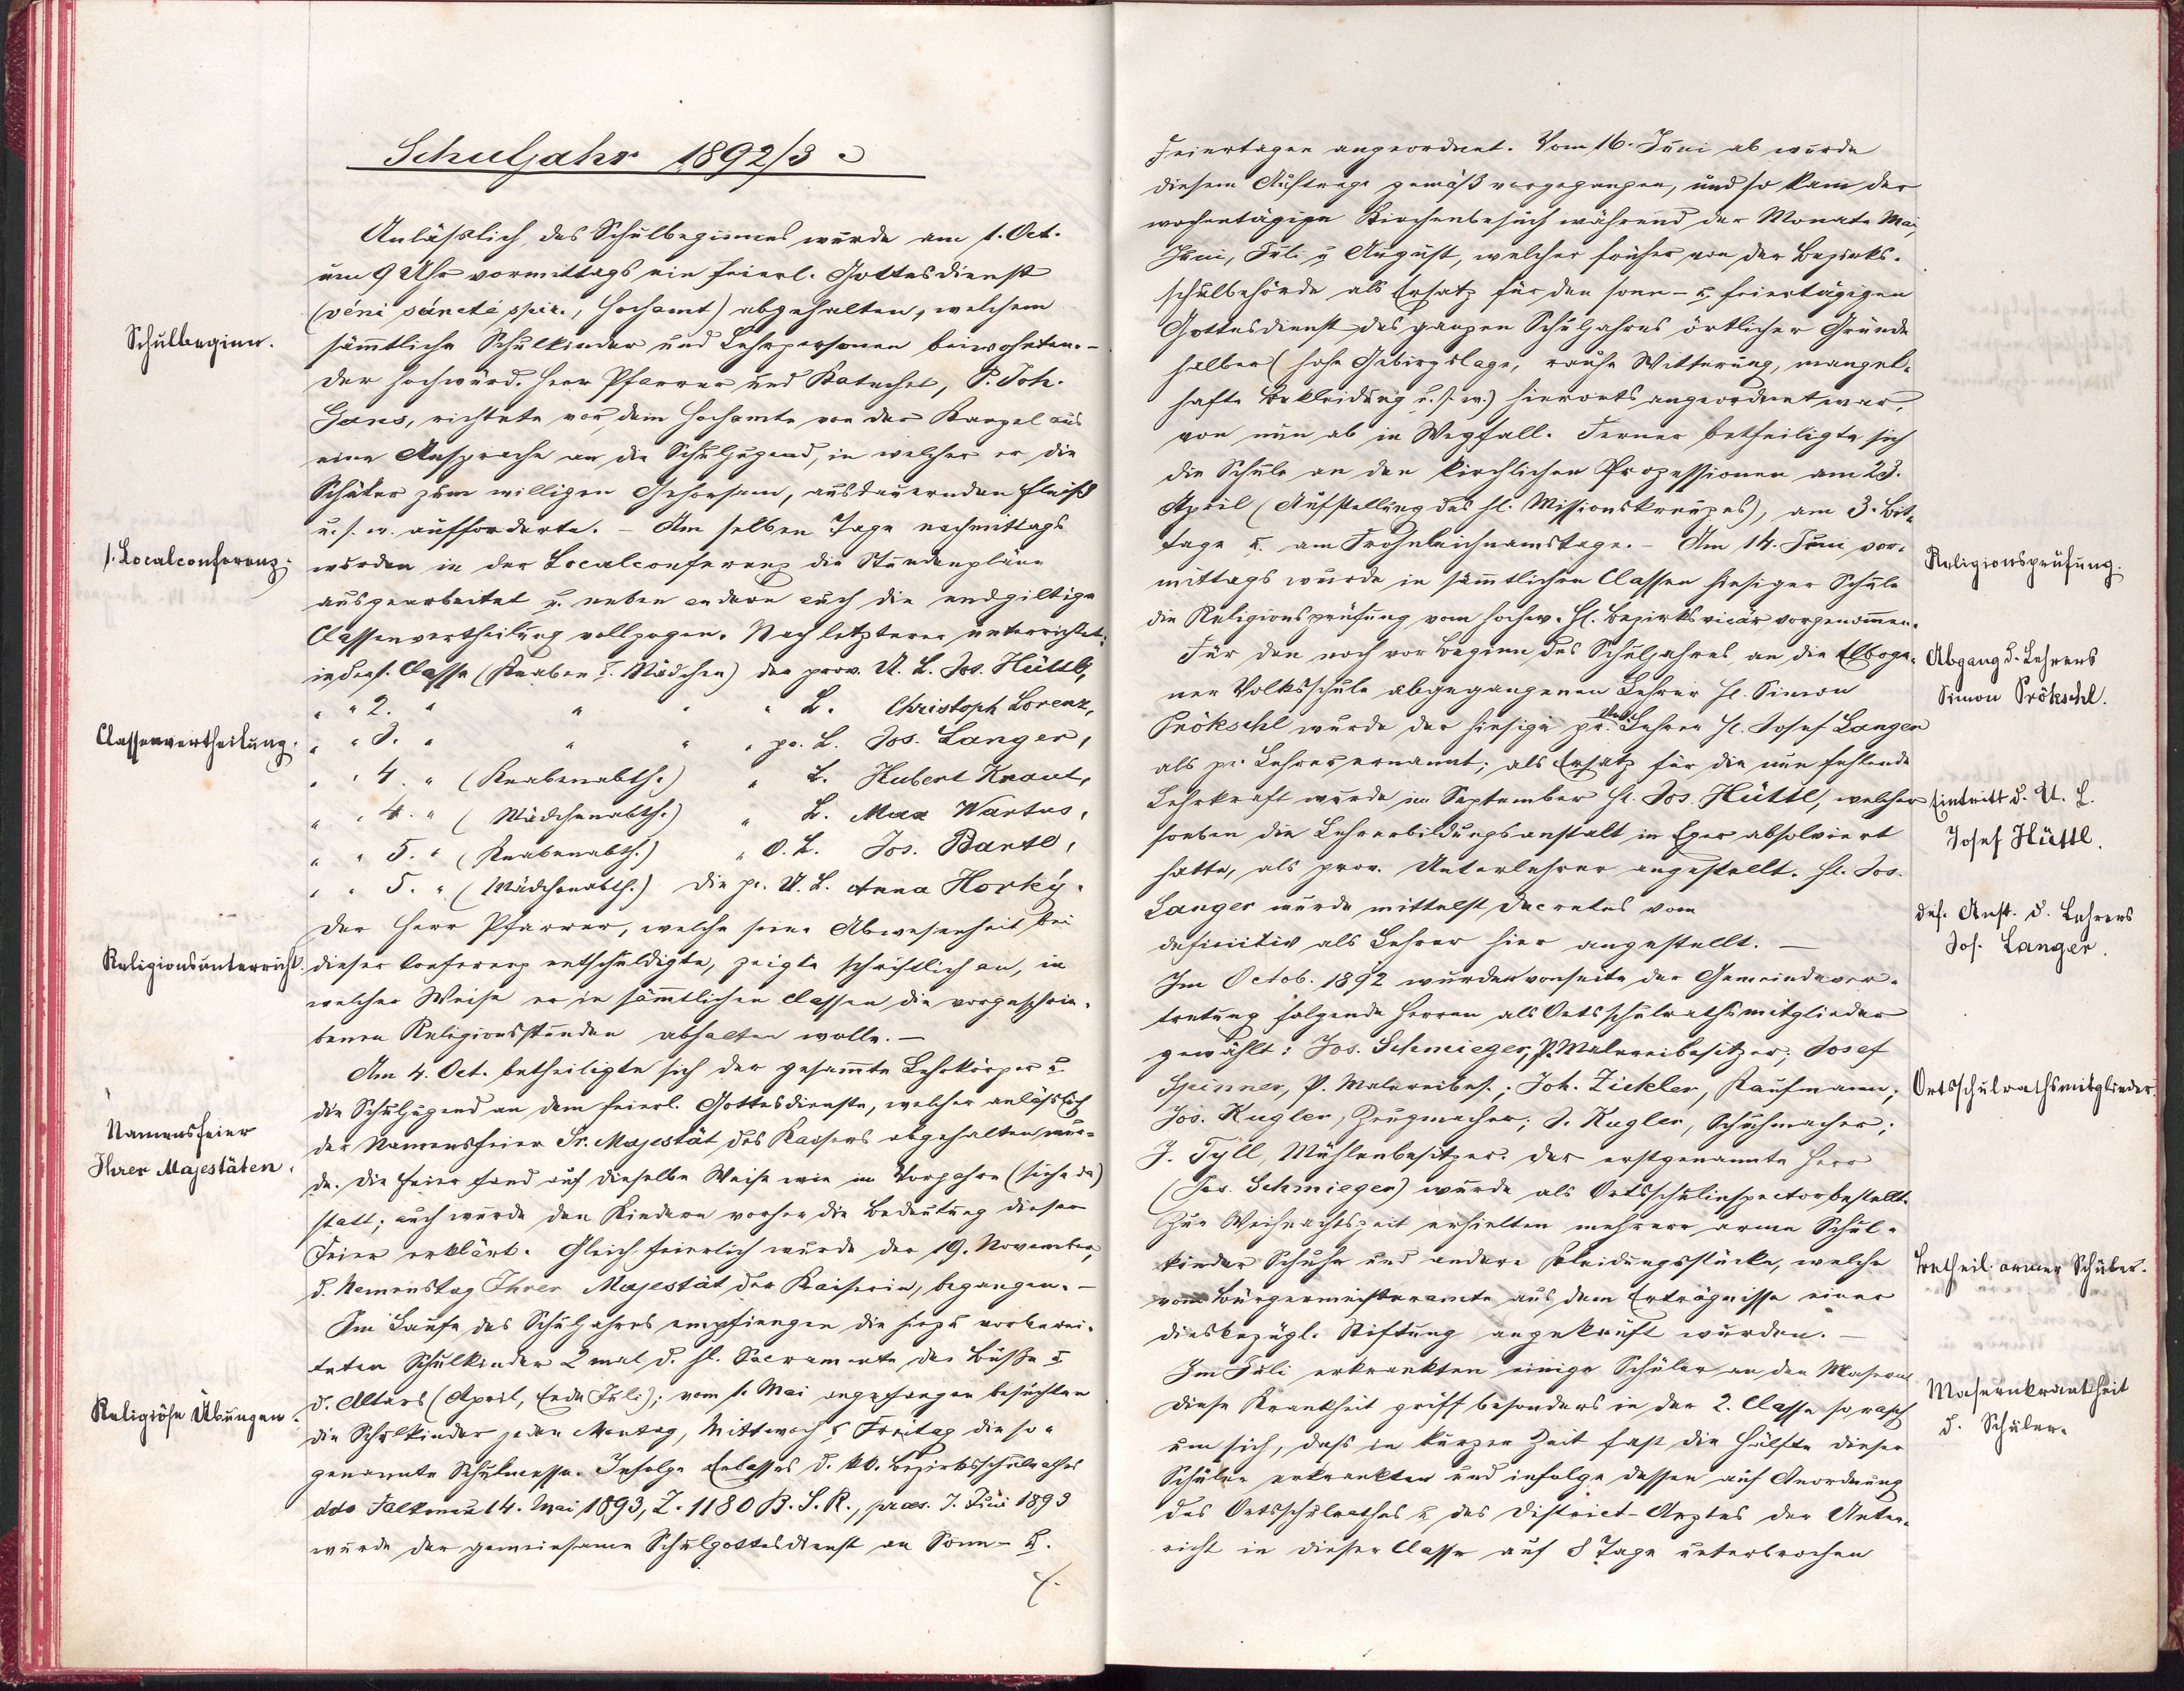 Schuljahr 1892/3
Anläßlich des Schulbeginnes wurde am 1. Oct.
um 9 Uhr vormittags ein feierl. Gottesdienst
(véni sáncté spir., Hochamt) abgehalten, welchem
Schulbeginn.
sämmtliche Schulkinder und Lehrpersonen beiwohnten. –
Der hochwürd. Herr Pfarrer und Katechet, P. Joh.
Gans, richtete vor dem Hochamte von der Kanzel aus
eine Ansprache an die Schuljugend, in welcher er die
Schüler zum willigen Gehorsam, ausdauernden Fleiß
u. s. w. aufforderte. – Am selben Tage nachmittags
1. Localconferenz.
wurden in der Localconferenz die Stundenpläne
ausgearbeitet u. neben andern auch die endgiltige
Classenvertheilung vollzogen. Nach letzterer unterrichtet:
in der 1. Classe (Knaben u. Mädchen) der prov. U. L. Jos. Hüttl,
" " 2. " " " " L. Christoph Lorenz,
Classenvertheilung.
" " 3. " " " " pr. L. Jos. Langer,
" " 4. " (Knabenabth.) " L. Hubert Kraut,
" " 4. " (Mädchenabth.) " L. Max Wartus,
" " 5. " (Knabenabth.) " O. L. Jos. Bartl,
" " 5. " (Mädchenabth.) die pr. U. L. Anna Horký.
Der Herr Pfarrer, welche seine Abwesenheit bei
Religionsunterricht.
dieser Conferenz entschuldigte, zeigte schriftlich an, in
welcher Weise er in sämmtlichen Classen die vorgeschrie-
benen Religionsstunden abhalten wolle. –
Am 4. Oct. betheiligte sich der gesammte Lehrkörper u.
die Schuljugend an dem feierl. Gottesdienste, welcher anläßlich
Namensfeier
Ihrer Majestäten.
der Namensfeier Sr. Majestät des Kaisers abgehalten wur-
de. Die Feier fand auf dieselbe Weise wie im Vorjahre (siehe da)
statt; auch wurde den Kindern vorher die Bedeutung dieser
Feier erklärt. Gleich feierlich wurde der 19. November,
d. Namenstag Ihrer Majestät der Kaiserin, begangen. –
Im Laufe des Schuljahres empfiengen die hiezu vorberei-
teten Schulkinder 2 mal d. hl. Sacramente der Buße u.
Religiöse Übungen.
d. Altars (April, Ende Juli); vom 1. Mai angefangen besuchten
die Schulkinder jeden Montag, Mittwoch u. Freitag die so-
genannte Schulmesse. Infolge Erlasses d. kk. Bezirksschulrathes
ddo Falkenau 14. Mai 1893, Z. 1180 B. S. R., praes. 7. Juni 1893
wurde der gemeinsame Schulgottesdienst an Sonn- u.
Feiertagen angeordnet. Vom 16. Juni ab wurde
diesem Auftrage gemäß vorgegangen, und so kam der
wochentägige Kirchenbesuch während der Monate Mai,
Juni, Juli u. August, welcher früher von der Bezirks-
schulbehörde als Ersatz für den sonn- u. feiertägigen
Gottesdienst des ganzen Schuljahres örtlicher Gründe
halber (hohe Gebirgslage, rauhe Witterung, mangel-
hafte Bekleidung u. s. w.) hierorts angeordnet war,
von nun ab in Wegfall. Ferner betheiligte sich
die Schule an den kirchlichen Prozessionen am 23.
April (Aufstellung des hl. Missionskreuzes), am 3. Bit-
tage u. am Frohnleichnamstage. – Am 14. Juni vor-
Religionsprüfung.
mittags wurde in sämmtlichen Classen hiesiger Schule
die Religionsprüfung vom hochw. H. Bezirksvicär vorgenommen.
Für den noch vor Beginn des Schuljahres an die Elboge-
Abgang d. Lehrers
Simon Prökschl.
ner Volksschule abgegangenen Lehrer H. Simon
Prökschl wurde der hiesige pr. Lehrer H. Josef Langer
als pr. Lehrer ernannt; als Ersatz für die nun fehlende
Lehrkraft wurde im September H. Jos. Hüttl, welcher
Eintritt d. U. L.
Josef Hüttl.
soeben die Lehrerbildungsanstalt in Eger absolviert
hatte, als prov. Unterlehrer angestellt. H. Jos.
Langer wurde mittelst Decretes vom
def. Anst. d. Lehrers
Jos. Langer.
definitiv als Lehrer hier angestellt. –
Im Octob. 1892 wurden vonseite der Gemeindever-
tretung folgende Herren als Ortsschulrathsmitglieder
gewählt: Jos. Schmieger, P. Malereibesitzer; Josef
Spinner, P. Malereibes.; Joh. Zickler, Kaufmann;
Ortsschulrathsmitglieder.
Jos. Kugler, Zeugmacher; J. Kugler, Schuhmacher;
J. Tyll, Mühlenbesitzer. Der erstgenannte Herr
(Jos. Schmieger) wurde als Ortsschulinspector bestellt.
Zur Weihnachtszeit erhielten mehrere arme Schul-
kinder Schuhe und andere Kleidungsstücke, welche
Betheil. armer Schüler.
vom Bürgermeisteramte aus dem Erträgnisse einer
diesbezügl. Stiftung angekauft wurden. –
Im Juli erkrankten einige Schüler an den Masern.
Masernkrankheit
d. Schüler.
Diese Krankheit griff besonders in der 2. Classe so rasch
um sich, dass in kurzer Zeit fast die Hälfte dieser
Schüler erkrankten und infolge dessen auf Anordnung
des Ortsschulrathes u. des District-Arztes der Unter-
richt in dieser Classe auf 8 Tage unterbrochen